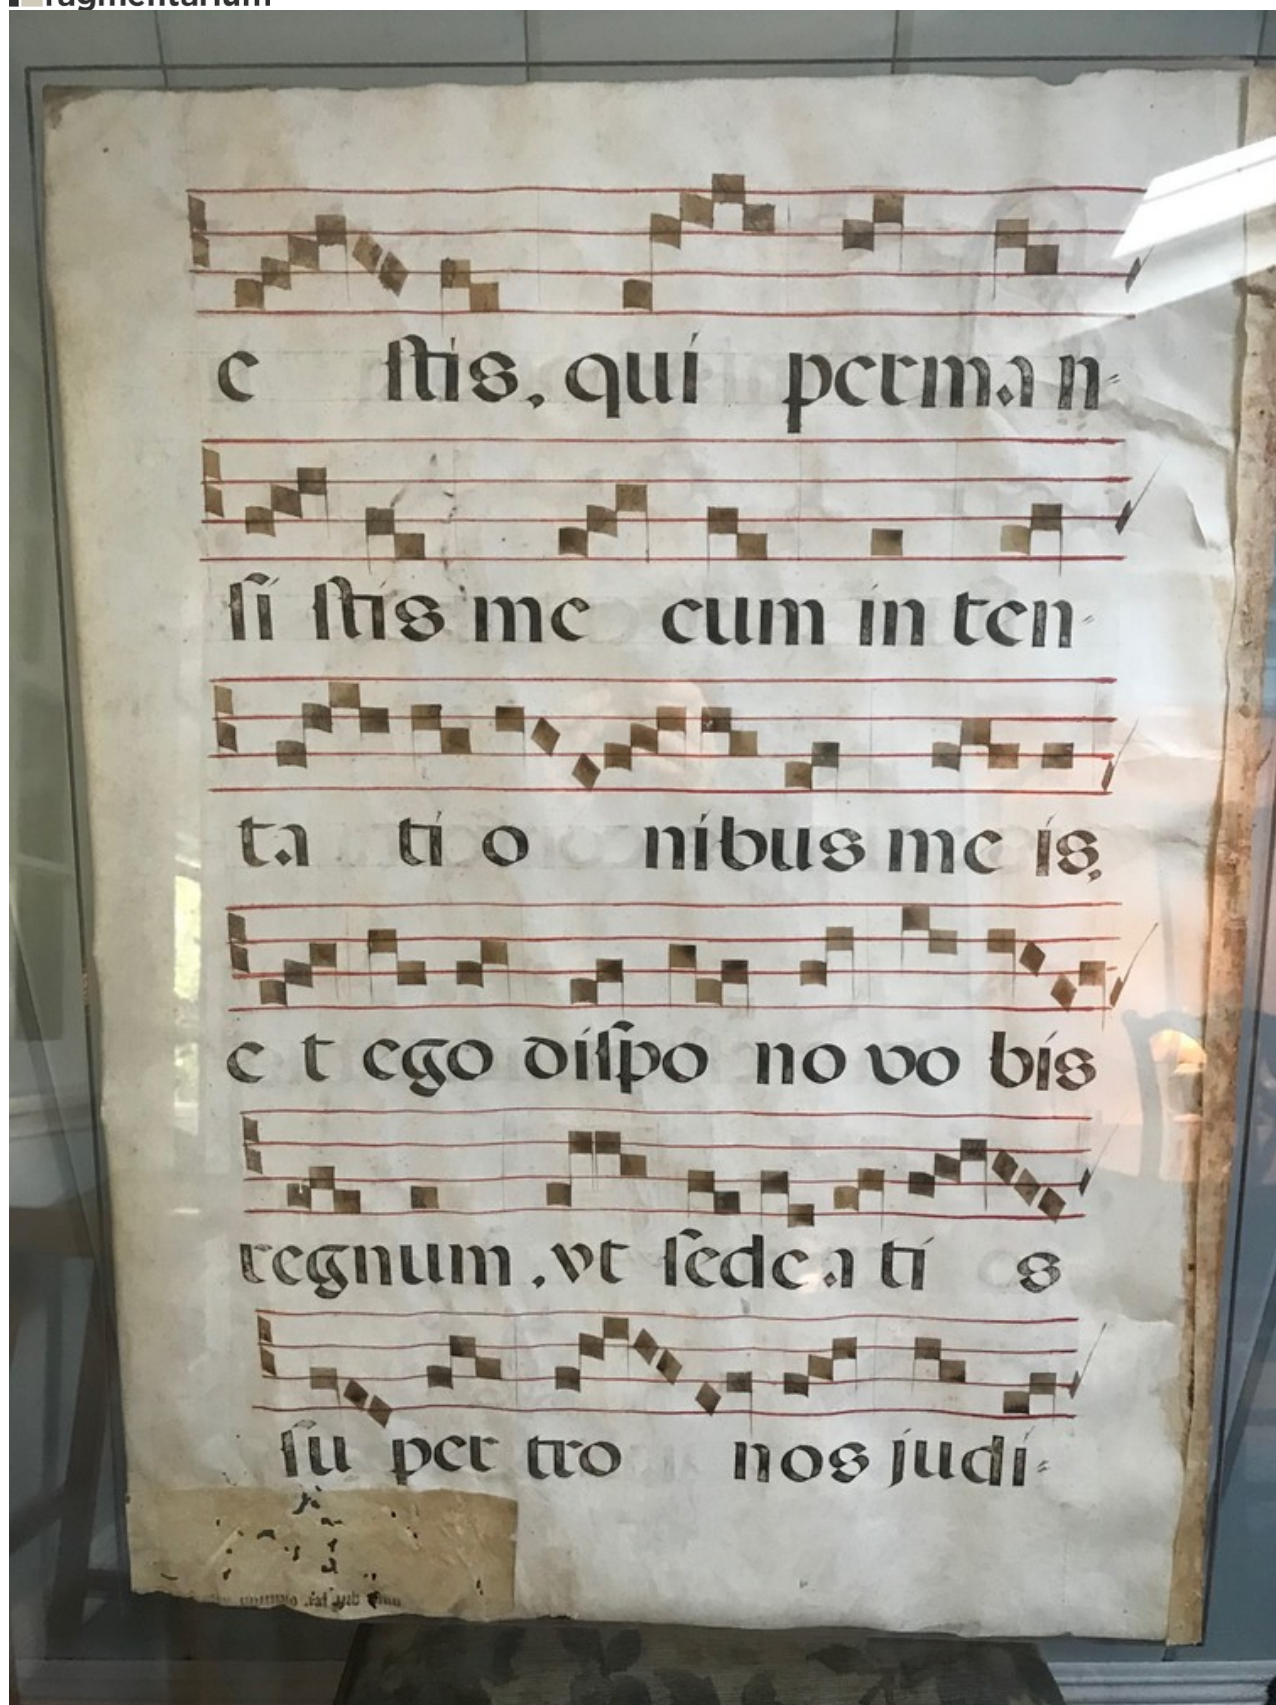 ragmentarium
e ſtis, qui perman⸗
ſi ſtis me cum in ten⸗
ta ti o nibus me is,
e t ego diſpo no vo bis
regnum, vt ſedea ti s
ſu per tro nos judi⸗